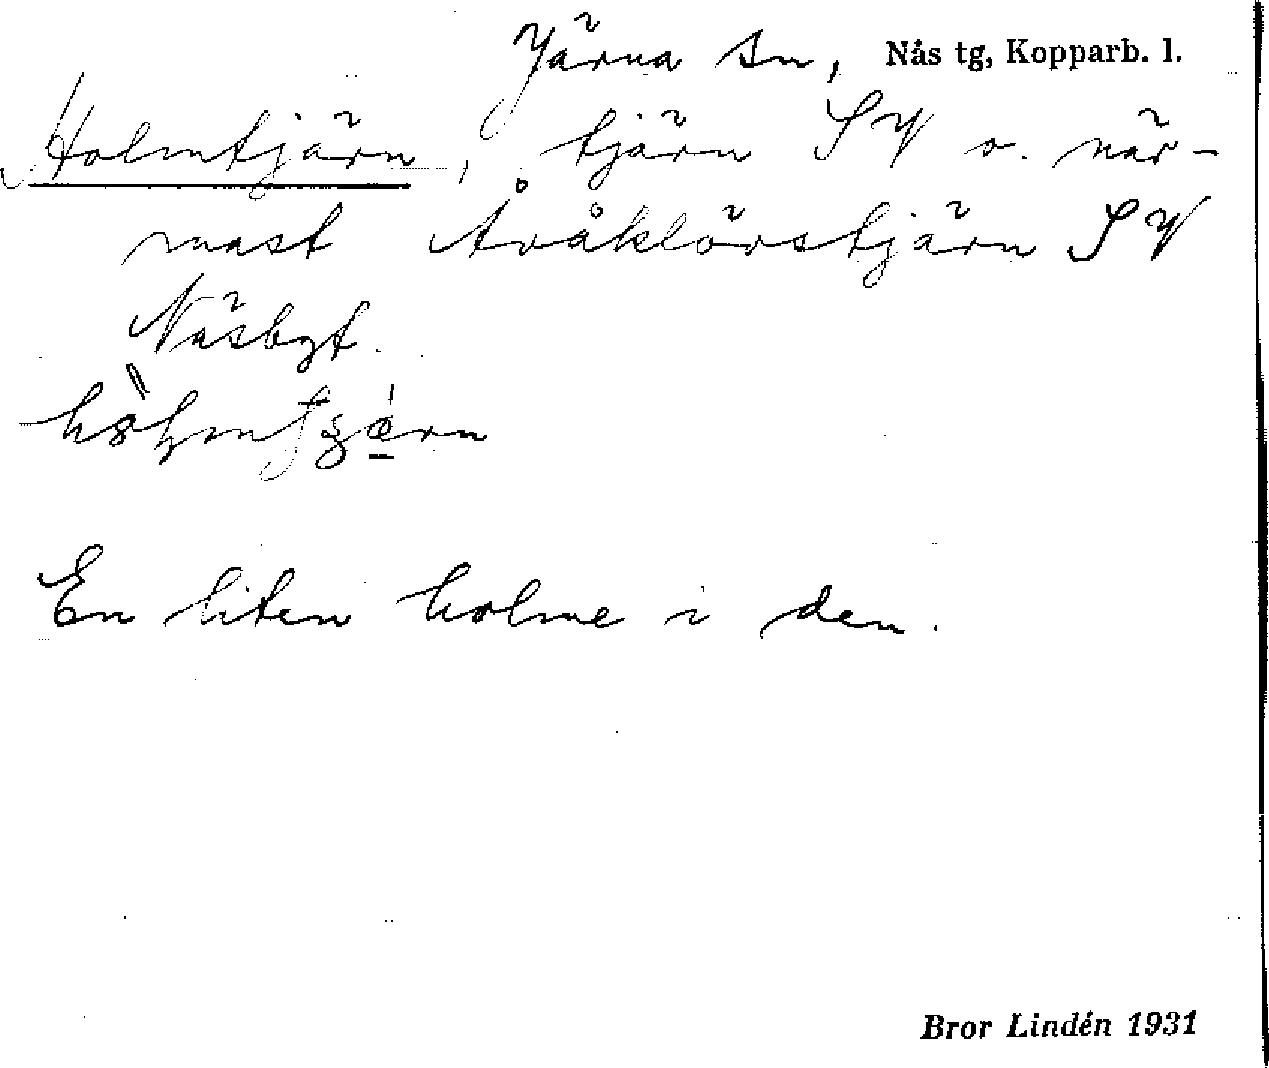 Järna sn, Nås tg, Kopparb. l.
Holmtjärn, tjärn SV o. när-
mast Åråklörstjärn SV
Näsbyt.
En liten holme i den.
Bror Lindén 1931